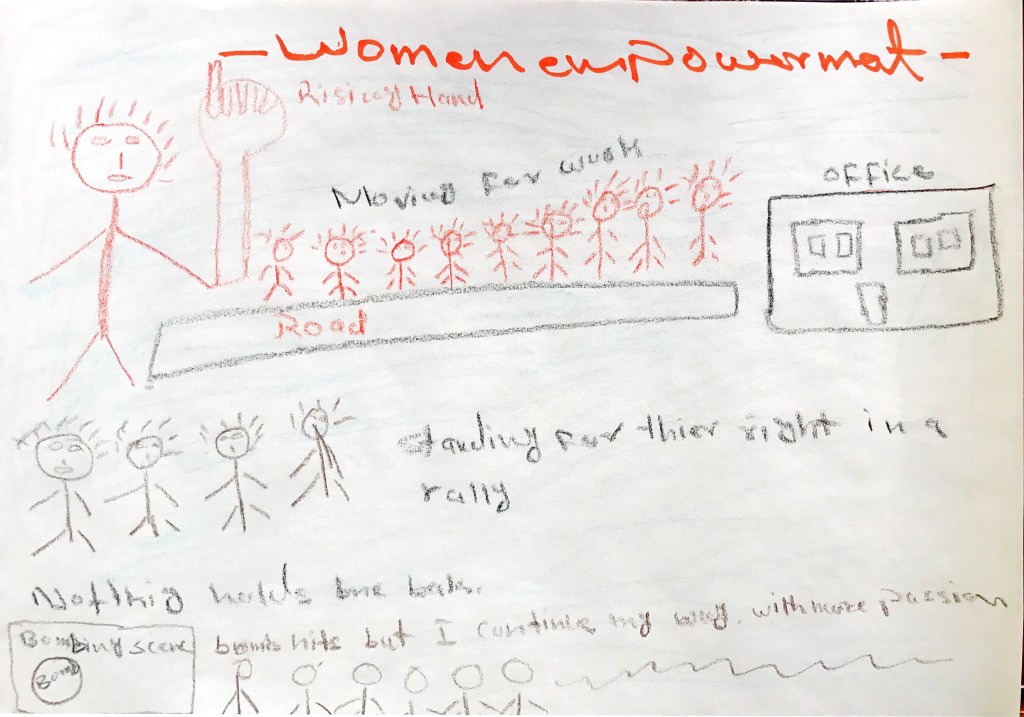 - Women empowermat -
Rising Hand
Moving for wuok
office
Road
standing for thier right in a
rally
Nofthig holds me bak.
Bombing scene
bomb hits but I continue my way. with more passion
Bomb